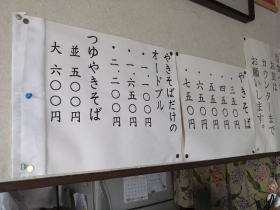 お願いします。
やきそば
・三五〇円
・五五〇円
・六五〇円
・七五〇円
やきそばだけの
オードブル
・一、一〇〇円
・一、六五〇円
・二、二〇〇円
つゆやきそば
並 五〇〇円
大 六〇〇円